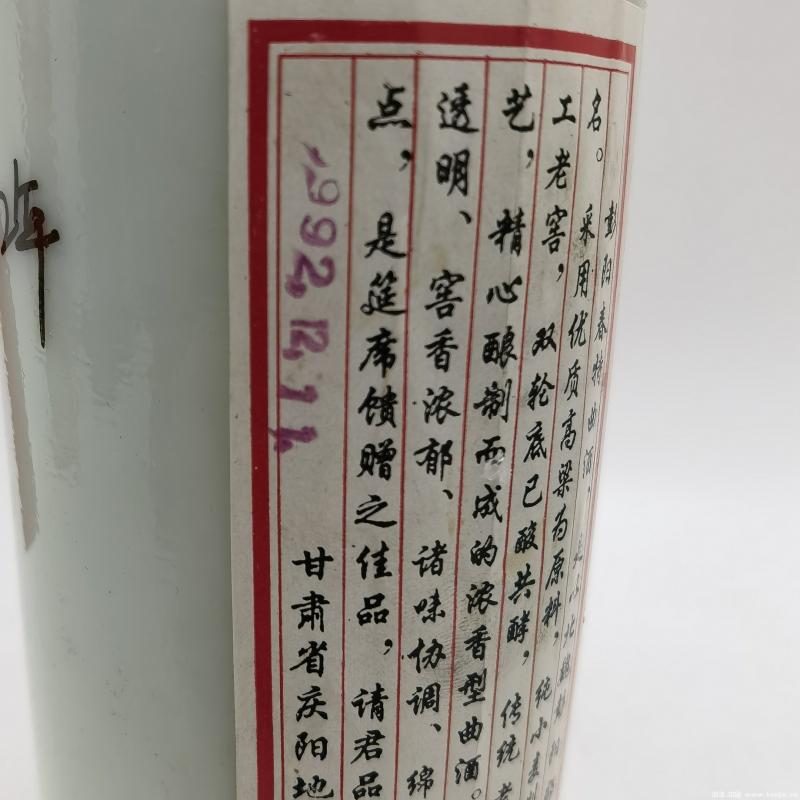 彭阳春特曲酒，
名。采用优质高粱为原料，纯小麦
工老窖，双轮底已酸共酵，传统老
艺，精心酿制而成的浓香型曲酒。
透明、窖香浓郁、诸味协调、绵
点，是筵席馈赠之佳品，请君品
甘肃省庆阳地
1992.12.11
年